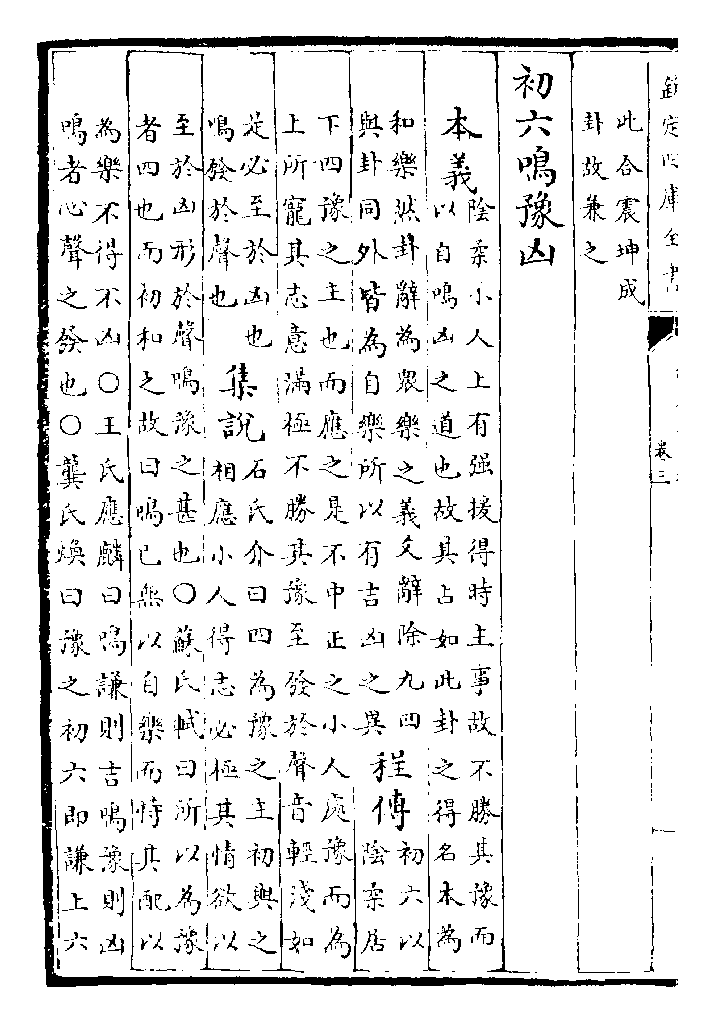 欽定四庫全書
卷三
此合震坤成
卦故兼之
初六鳴豫凶
本義
陰柔小人上有强援得時主事故不勝其豫而
以自鳴凶之道也故其占如此卦之得名本為
和樂然卦辭為衆樂之義爻辭除九四
與卦同外皆為自樂所以有吉凶之異
程傳
初六以
陰柔居
下四豫之主也而應之是不中正之小人處豫而為
上所寵其志意滿極不勝其豫至發於聲音輕淺如
是必至於凶也
鳴發於聲也
集說
石氏介曰四為豫之主初與之
相應小人得志必極其情欲以
至於凶形於聲鳴豫之甚也〇蘇氏軾曰所以為豫
者四也而初和之故曰鳴已無以自樂而恃其配以
為樂不得不凶〇王氏應麟曰鳴謙則吉鳴豫則凶
鳴者心聲之發也〇龔氏煥曰豫之初六即謙上六